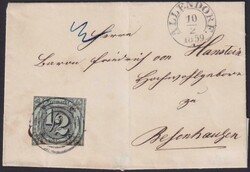 ALLENDORF
10
2
1859
Herrn
Baron Friedrich von Hanstein
Hochwohlgeboren
zu
Besenhausen
1/2